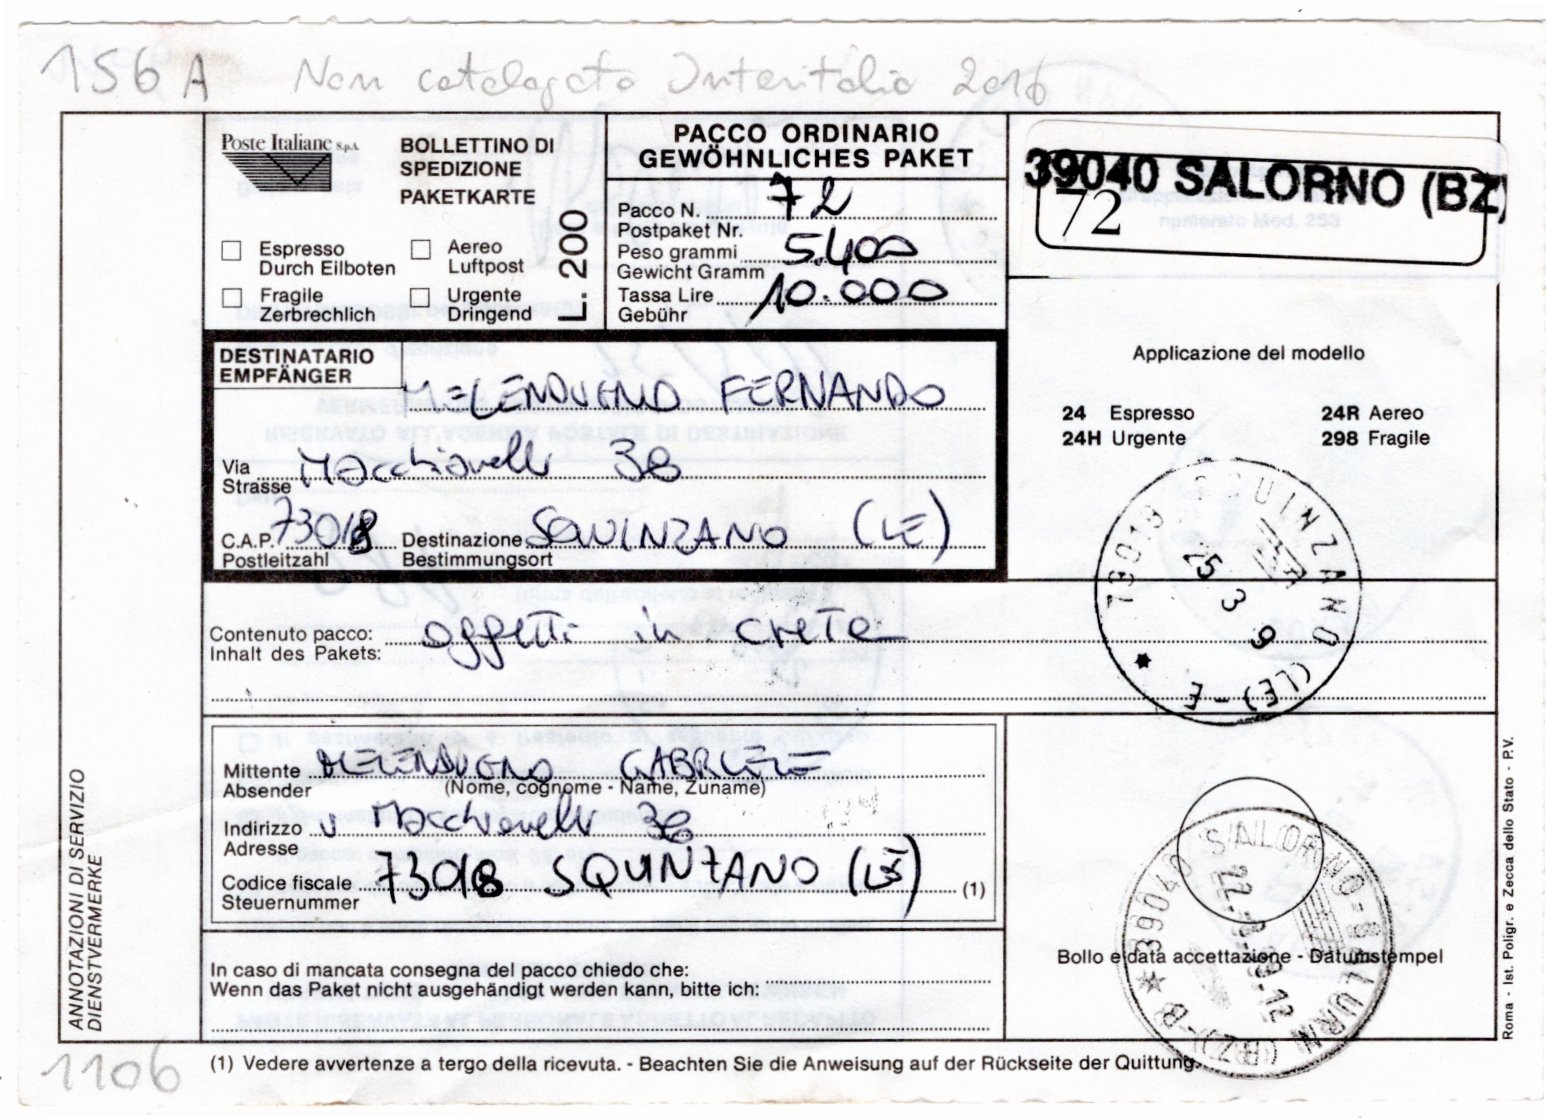 156 A Non catalogato Interitalia 2016
Poste Italiane S.p.A.
BOLLETTINO DI
SPEDIZIONE
PAKETKARTE
Espresso
Durch Eilboten
Aereo
Luftpost
Fragile
Zerbrechlich
Urgente
Dringend
L. 200
PACCO ORDINARIO
GEWÖHNLICHES PAKET
Pacco N. 72
Postpaket Nr.
Peso grammi 5.400
Gewicht Gramm
Tassa Lire 10.000
Gebühr
39040 SALORNO (BZ)
72
numerato Mod. 253
DESTINATARIO
EMPFÄNGER
MELENDUGNO FERNANDO
Via Macchiavelli 38
Strasse
C.A.P. 73018 Destinazione SQUINZANO (LE)
Postleitzahl Bestimmungsort
Applicazione del modello
24 Espresso 24R Aereo
24H Urgente 298 Fragile
73018 SQUINZANO (LE) - E
25 3 9
Contenuto pacco: oggetti in creta
Inhalt des Pakets:
Mittente MELENDUGNO GABRIELE
Absender (Nome, cognome - Name, Zuname)
Indirizzo v Macchiavelli 38
Adresse
Codice fiscale 73018 SQUINZANO (LE) (1)
Steuernummer
In caso di mancata consegna del pacco chiedo che:
Wenn das Paket nicht ausgehändigt werden kann, bitte ich:
39040 SALORNO - SALURN (BZ) - B
Bollo e data accettazione - Datumstempel
ANNOTAZIONI DI SERVIZIO
DIENSTVERMERKE
Roma - Ist. Poligr. e Zecca dello Stato - P.V.
(1) Vedere avvertenze a tergo della ricevuta. - Beachten Sie die Anweisung auf der Rückseite der Quittung.
1106